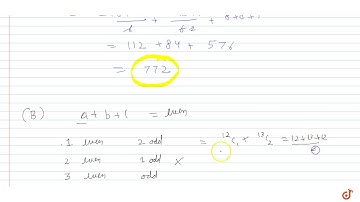 + + 8+0+1
= 112 + 84 + 576
= 772
(B) a + b + 1 = even
1 even 2 odd = 12C1 × 13C2 = 12×13×12
2 even 1 odd ×
3 even odd